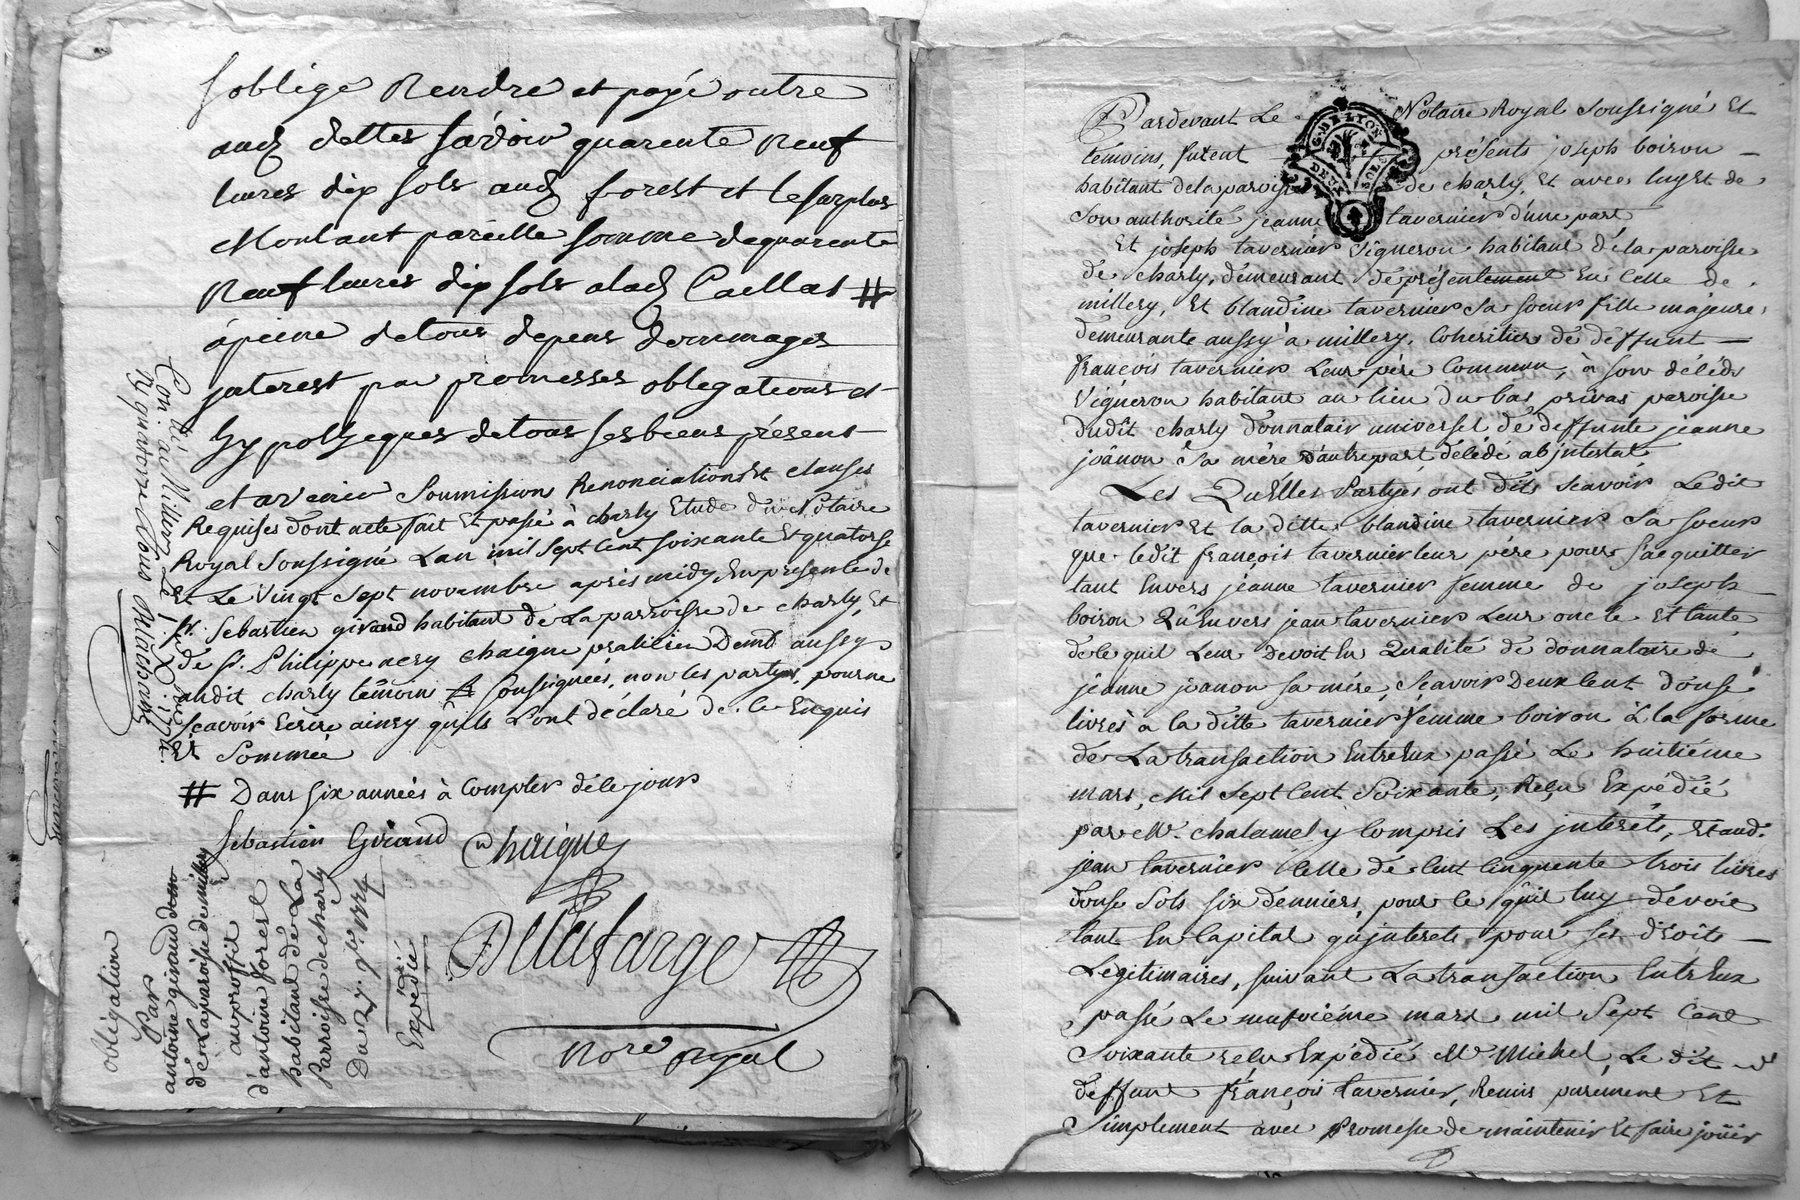 soblige Rendre et payé outre
aud dettes savoir quarente Neuf
livres dix sols aud forest et le surplus
Montant pareille somme de quarente
Neuf livres dix sols alad Caillat #
à peine de tous depens dommages
jnterest par promesses obligations et
hypotheques de tous ses biens présent
et avenir Soumissions Renonciations Et clauses
Requises dont acte fait Et passé à charly Etude du Notaire
Royal Soussigné Lan mil sept Cent soixante Et quatorse
Et Le Vingt Sept novembre après midy En présente de
sr. Sebastien girard habitant de La parroisse de charly, Et
de sr. Philippe aery chaigne praticien Demt aussy
audit charly têmoin Soussignées, non les partyes, pour ne
Scavoir Ecrire ainsy qu'ils Lont déclaré de ce Enquis
Et Sommée
# Dans six années à Compter déce jour
Sebastien Girard Chaigne
Delafarge
Nore Royal
Con.lé à Millery Le 1. Xbre 1774
Rç quatorze sous
obligation
Par
antoine giraud
dé La paroisse de millery
au proffit
d'antoine forest
habitant dé La
Parroisse de charly
Du 27. 9bre. 1774
Expédié
Pardevant Le Notaire Royal Soussigné Et
témoins, furent présents joseph boiron
habitant dela paroisse de charly, Et avec luy Et de
Son authorité jeanne tavernier d'une part
Et joseph tavernier Vigneron habitant déla paroisse
de charly, démeurant de présentement En Celle de
millery, Et blandine tavernier Sa soeur fille majeure
démeurante aussy à millery, Coheritiers dé deffunt
françois tavernier Leur père Commun, à son dédéds
Vigneron habitant au lieu du bas privas paroisse
dudit charly donnatair universel de deffunte jeanne
joânon Sa mère d'autre part, délédé abjntestat
Les Quelles Partyes ont dits Scavoir Ledit
tavernier Et la ditte blandine tavernier Sa soeur
que ledit françois tavernier leur père pour Sacquitter
tant Envers jeanne tavernier femme de joseph
boiron Qu'Envers jean tavernier Leur oncle Et tante
de ce quil Leur Devoit En Qualité de donnataire de
jeanne joanon sa mére, Scavoir Deux Cent douse
livres à la ditte tavernier femme boiron à la forme
de La transaction Entre Eux passé Le huitiéme
mars, Mil Sept Cent Soixante, Reçu Expédié
par Me. chalamel y Compris Les jnterêts, Et aud.
jean tavernier Celle de Cent Cinquente trois livres
douse Sols six denniers, pour Ce quil luy devoit
tant En Capital qu'jnterets pour ses droits
Légitimaires, suivant La transaction Entre Eux
passé Le neufviéme mars mil Sept Cent
Soixante reçu Expédié Me Michel, Le dit
deffunt françois tavernier, Remis purement Et
Simplement avec Promesse de maintenir Et faire joüir